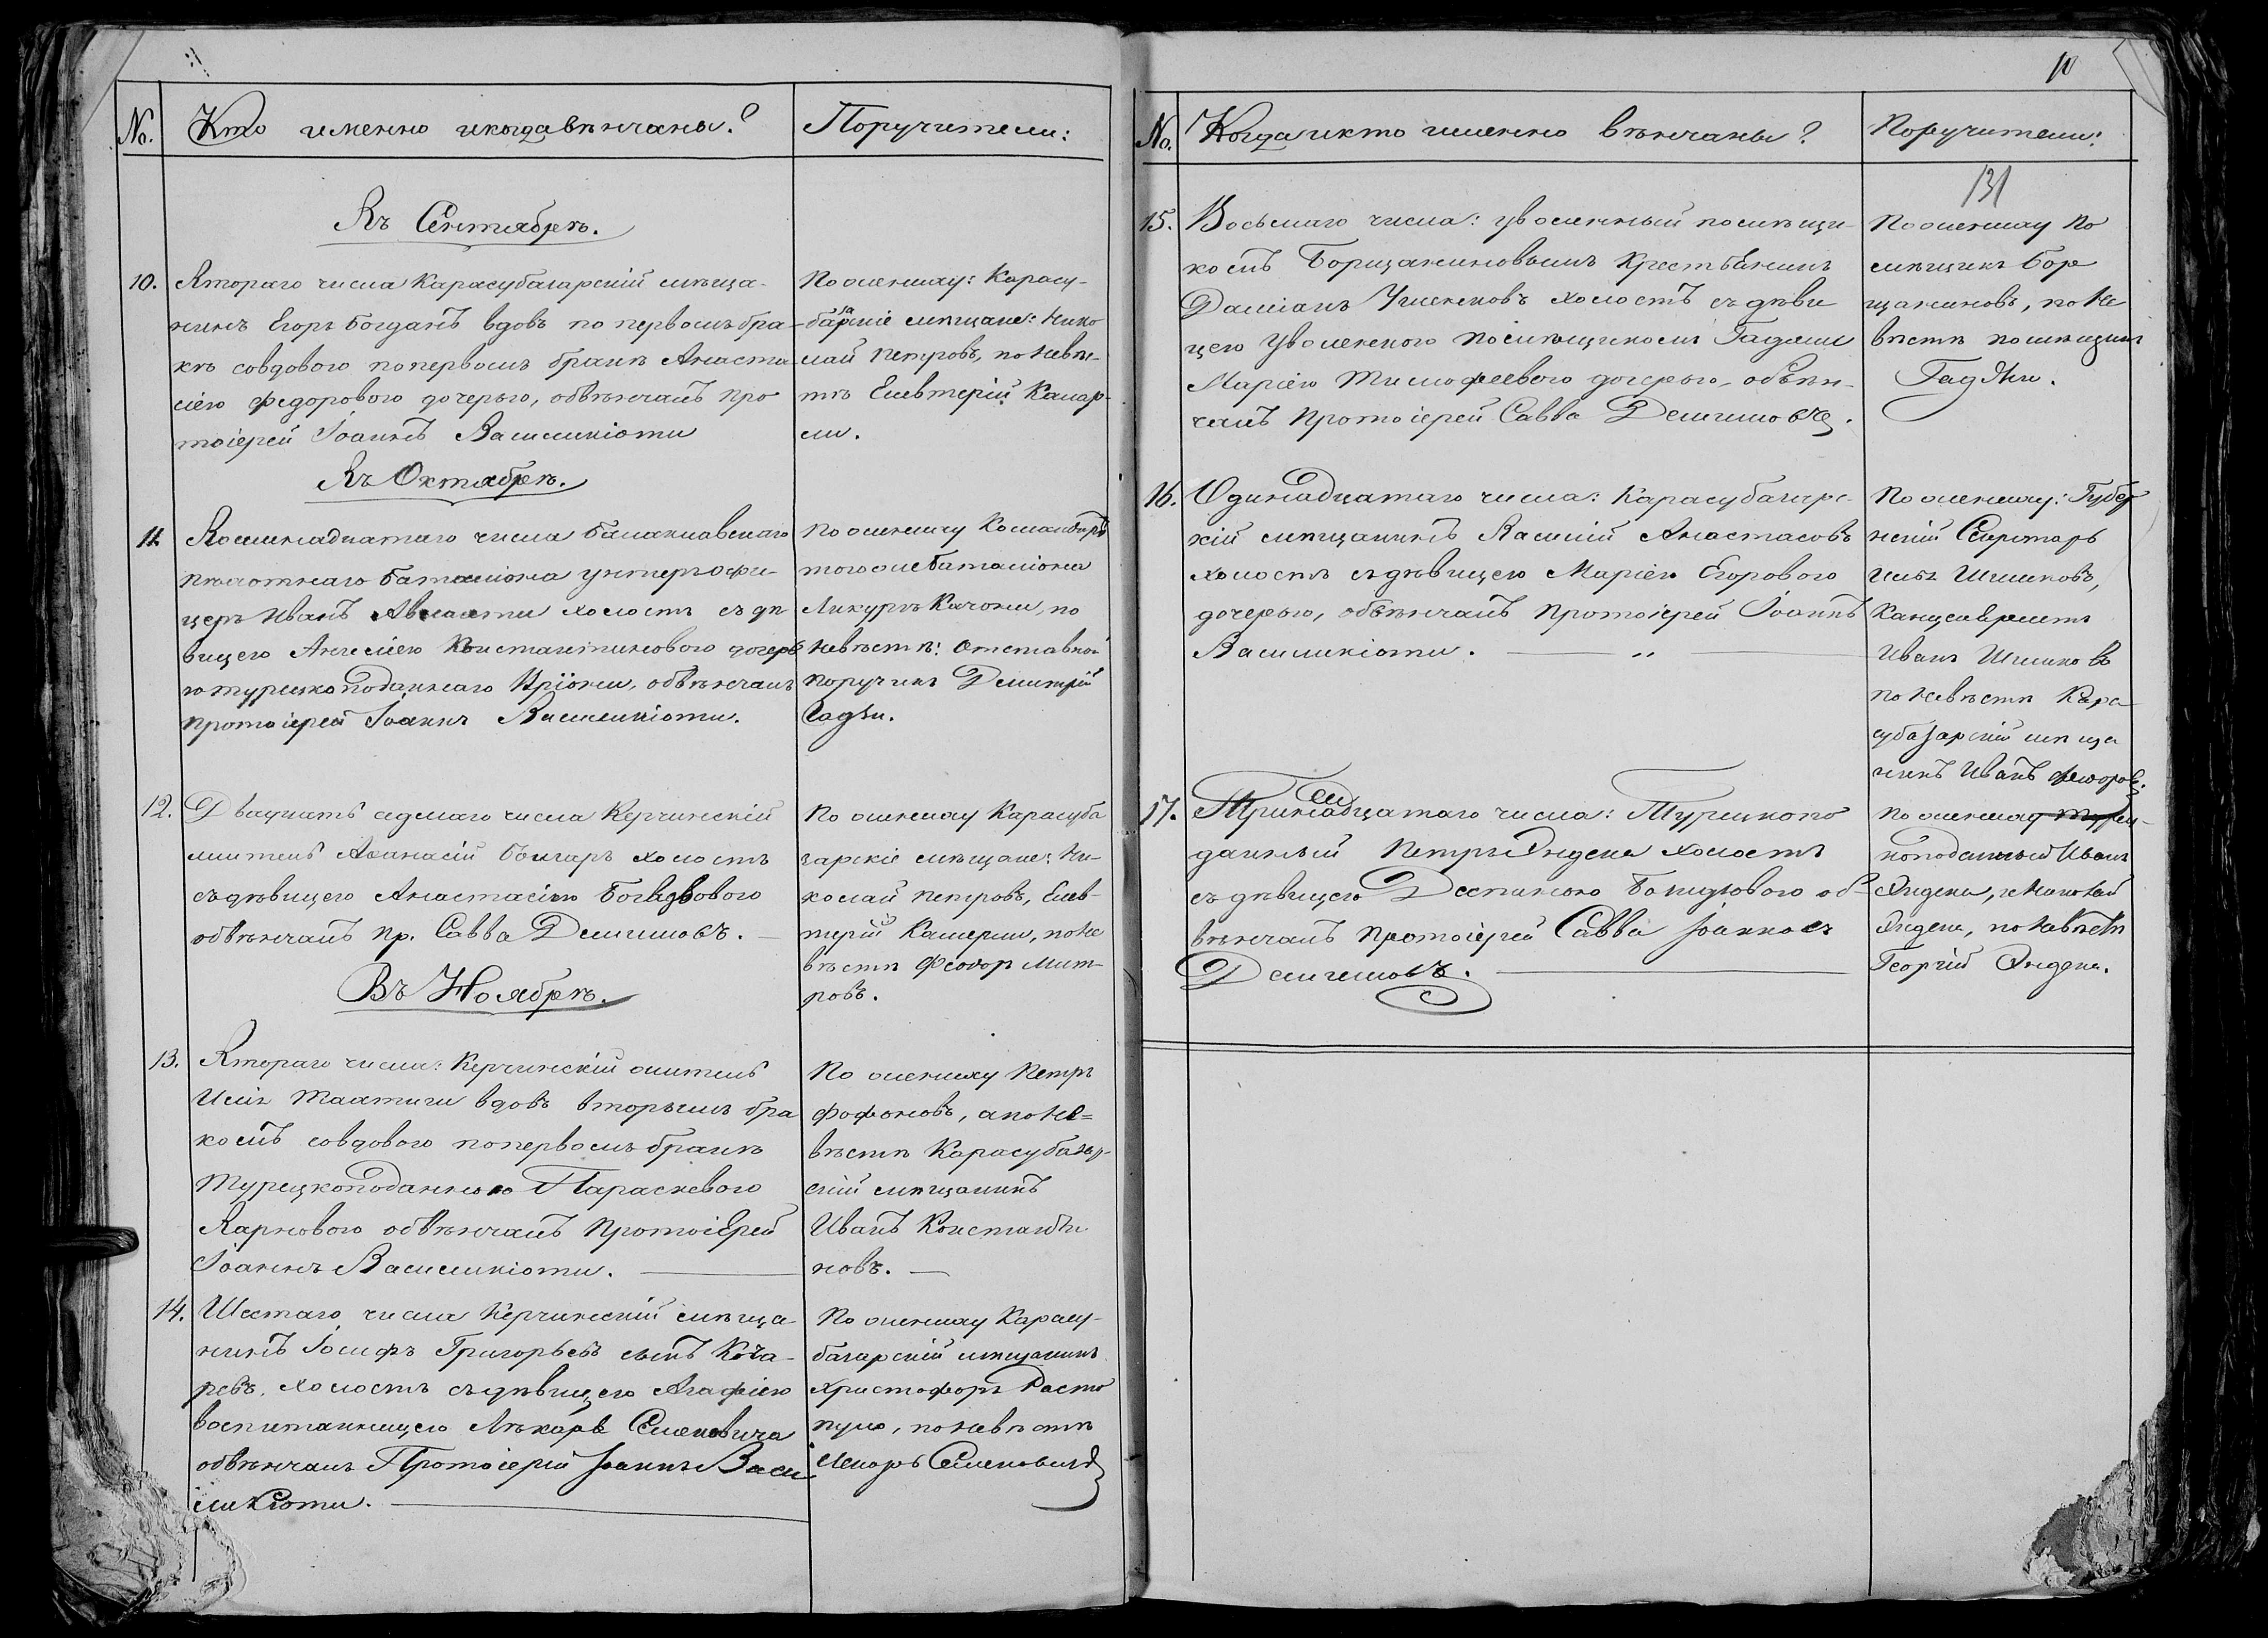 №.
Кто именно и когда вѣнчаны?
Поручители:
Въ Сентябрѣ.
10.
Втораго числа Карасубазарскій мѣща-
нинъ Егоръ Богданъ вдовъ по первомъ бра-
кѣ со вдовою по первомъ бракѣ Анаста
сіею Федоровою дочерью, обвѣнчалъ про
тоіерей Іоаннъ Василикіоти
По женихѣ: Карасу-
базарскіе мѣщане: Нико
лай Петровъ, по невѣс-
тѣ Елевтерій Камар-
ли.
Въ Октябрѣ.
11.
Восемнадцатаго числа Балаклавскаго
пѣхотнаго баталіона унтеръ офи-
церъ Иванъ холостъ съ дѣ
вицею Константиновою дочерь
ю турецко подданнаго обвѣнчалъ
протоіерей Іоаннъ Василикіоти.
По жениху Командиръ
того же баталіона
Ликургъ Качони, по
невѣстѣ: Отставной
поручикъ Дмитрій
12.
Двадцать седмаго числа Керчинскій
житель Аѳанасій Болгаръ холостъ
съ дѣвицею Анастасіею
обвѣнчалъ пр. Савва
По жениху Карасуба
зарскіе мѣщане: Ни-
колай Петровъ, Елев-
терій по не
вѣстѣ Феодоръ Мит-
ровъ.
Въ Ноябрѣ.
13.
Втораго числа: Керчинскій житель
Илія вдовъ вторымъ бра
комъ со вдовою по первомъ бракѣ
Турецкоподанною Параскевою
обвѣнчалъ Протоіерей
Іоаннъ Василикіоти.
По жениху Петръ
Фофоновъ, а по не=
вѣстѣ Карасубазар-
скій мѣщанинъ
Иванъ Константи
новъ.
14.
Шестаго числа Керчинскій мѣща-
нинъ Іосифъ Григорьевъ сынъ
холостъ съ дѣвицею Агафіею
воспитанницею Лѣкаря Семеновича
обвѣнчалъ Протоіерей Іоаннъ Васи
ликіоти.
По жениху Карасу-
базарскій мѣщанинъ
Христофоръ Расто
пуло, по невѣстѣ
Лекарь Семеновичъ
10
№.
Когда и кто именно вѣнчаны?
Поручители:
131
15.
Восьмаго числа: уволенный помѣщи-
комъ Борщаниновымъ Крестьянинъ
Даміанъ холостъ съ дѣви
цею уволенною помѣщикомъ Гаджи
Маріею Тимофеевою дочерью, обвѣн-
чалъ Протоіерей Савва
По жениху По
мѣщикъ Бор
щаниновъ, по не
вѣстѣ помѣщикъ
Гаджи.
16.
Одинадцатаго числа: Карасубазарс-
кій мѣщанинъ Василій Анастасовъ
холостъ съ дѣвицею Маріею Егоровою
дочерью, обвѣнчалъ Протоіерей Іоаннъ
Василикіоти.
По жениху: Губер
нскій Секретарь
Илья Шишковъ,
Канцеляристъ
Иванъ Шишковъ
по невѣстѣ Кара
субазарскій мѣща
нинъ Иванъ Феодоровъ.
17.
Тринадцатаго числа: Турецкопо
данный Петръ холостъ
съ дѣвицею Деспиною об-
вѣнчалъ Протоіерей Савва Іоанновъ
По жениху Турец-
коподанный Иванъ
по невѣстѣ
Георгій